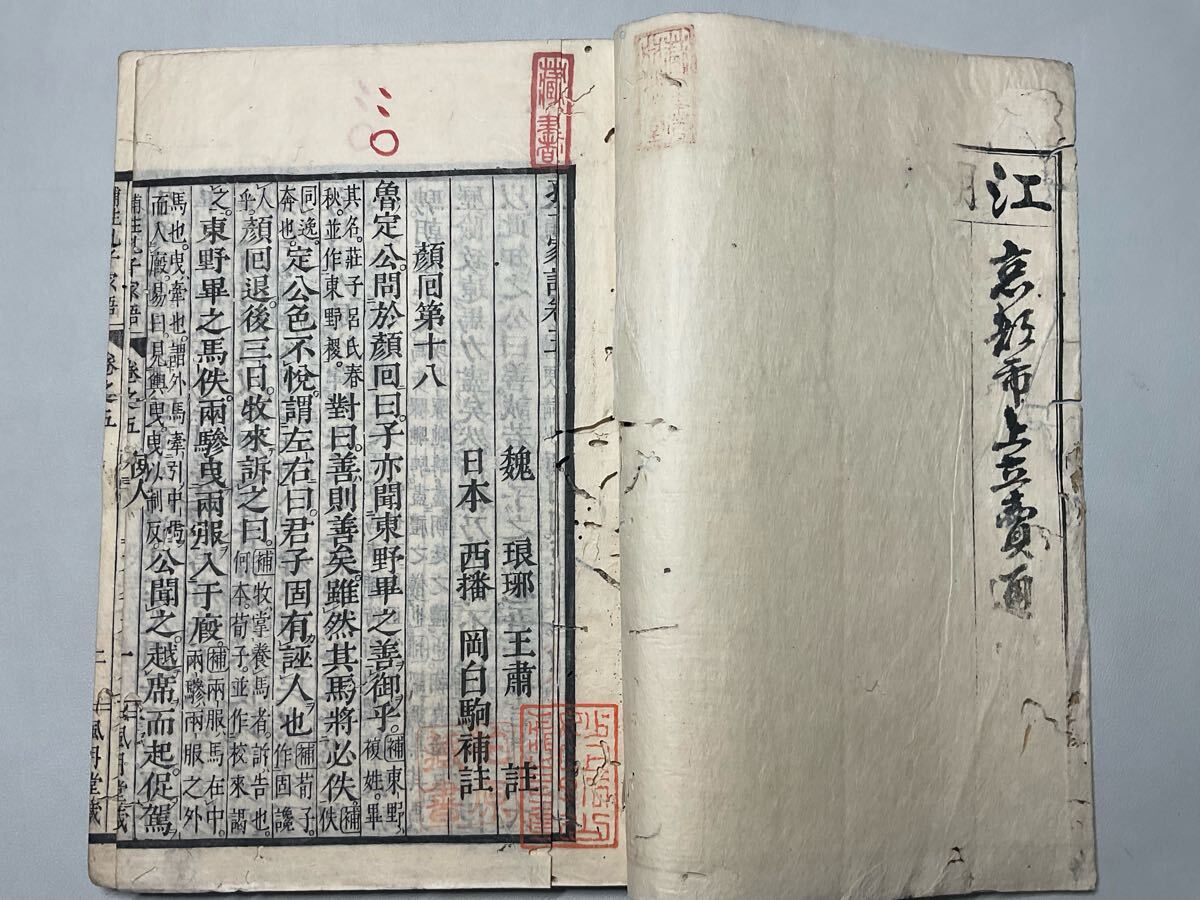 江
京都市上立賣通
藏書
孔子家語卷五
魏 琅琊 王肅 註
日本 西播 岡白駒補註
顏回第十八
魯定公問於顏回曰。子亦聞東野畢之善御乎。補東野複姓。畢
其名。莊子呂氏春秋。並作東野稷。對曰。善則善矣。雖然其馬將必佚。補佚
同逸。奔也。定公色不悅。謂左右曰。君子固有誣人也。補荀子。作固讒
人乎。顏回退。後三日。牧來訴之曰。補牧。掌養馬者。訴告也。何本。荀子。並作校來謁
之。東野畢之馬佚。兩驂曳兩服入于廏。補兩服馬在中。兩驂。兩服之外
馬也。曳。牽也。謂外馬牽引中馬。而入廏。易曰。見輿曳。曳以制反。公聞之。越席而起。促駕
補註孔子家語 卷之五 一 風月堂藏